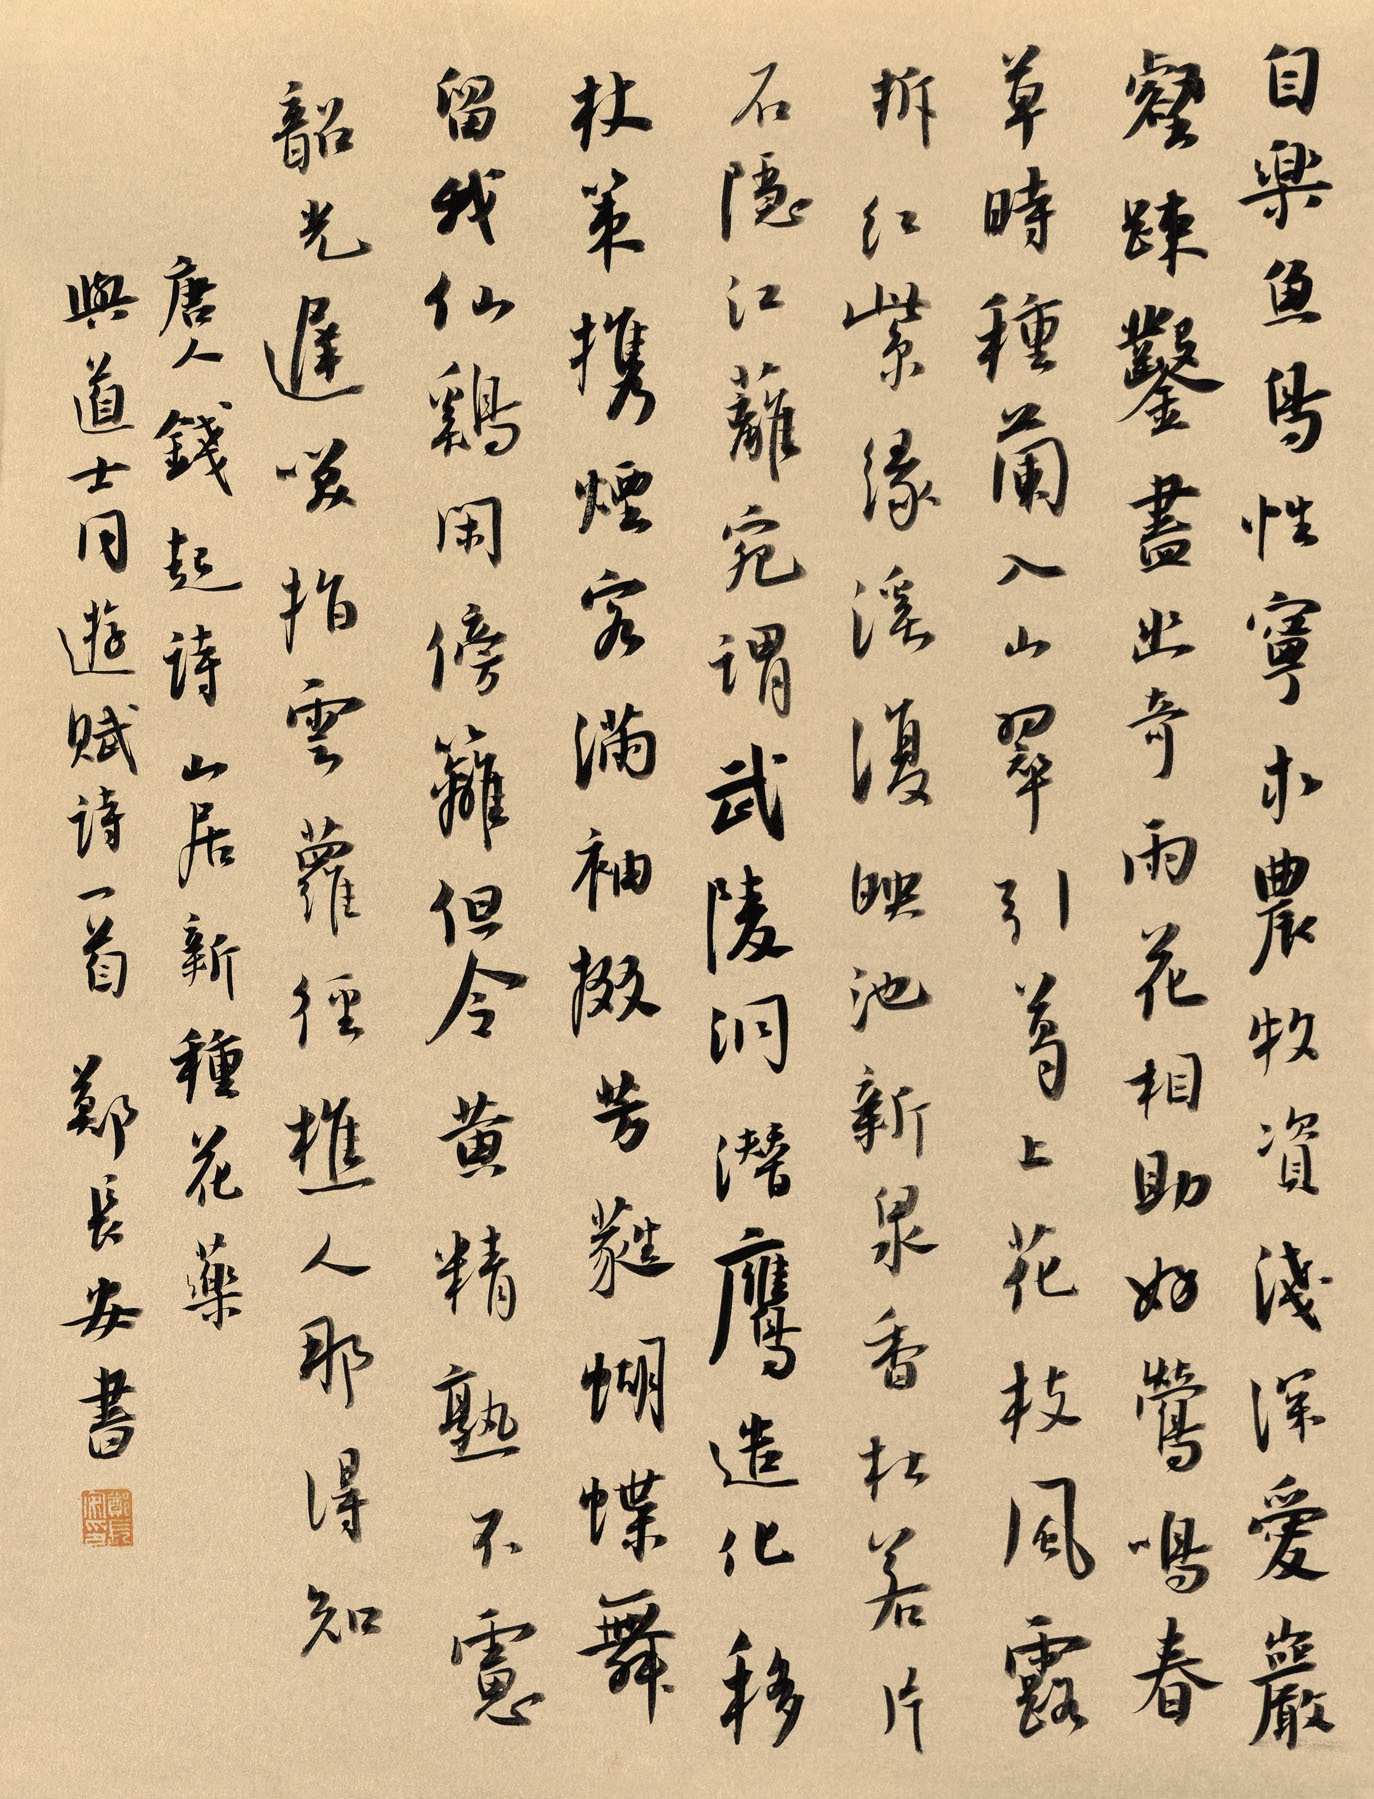 自樂魚鳥性寧求農牧資淺深愛巖
壑疎鑿盡出奇雨花相助好鶯鳴春
草時種蘭入山翠引葛上花枝風露
拆紅紫緣溪復映池新泉香杜若片
石隱江蘺宛謂武陵洞潛鷹造化移
杖策携煙客滿袖掇芳蕤蝴蝶舞
留我仙鷄閑傍籬但令黃精熟不慮
韶光遲笑指雲蘿徑樵人那得知
唐人錢起詩山居新種花藥
與道士同遊賦詩一首 鄭長安書